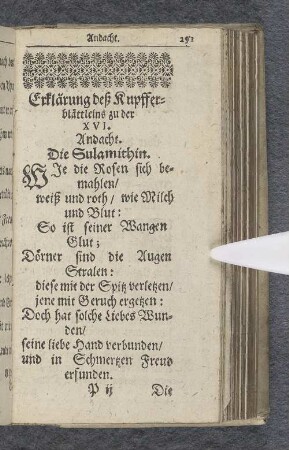 Andacht. 251
Erklärung deß Kupffer-
blättleins zu der
XVI.
Andacht.
Die Sulamithin.
WJe die Rosen sich be-
mahlen/
weiß und roth/ wie Milch
und Blut:
So ist seiner Wangen
Glut;
Dörner sind die Augen
Stralen:
diese mit der Spitz verletzen/
jene mit Geruch ergetzen:
Doch hat solche Liebes Wun-
den/
seine liebe Hand verbunden/
und in Schmertzen Freud
erfunden.
P ij Die